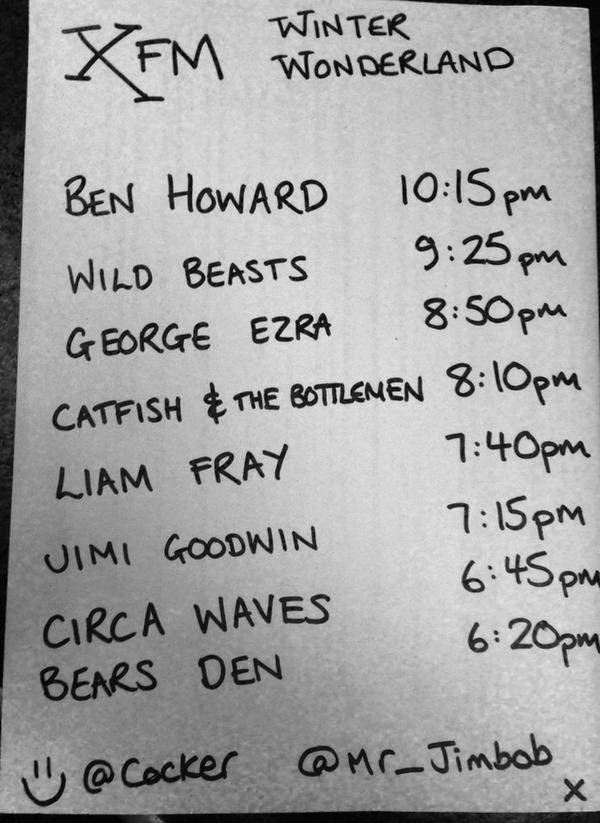 XFM WINTER WONDERLAND
BEN HOWARD 10:15pm
WILD BEASTS 9:25pm
GEORGE EZRA 8:50pm
CATFISH & THE BOTTLEMEN 8:10pm
LIAM FRAY 7:40pm
JIMI GOODWIN 7:15pm
CIRCA WAVES 6:45pm
BEARS DEN 6:20pm
@Cocker @Mr_Jimbob
X